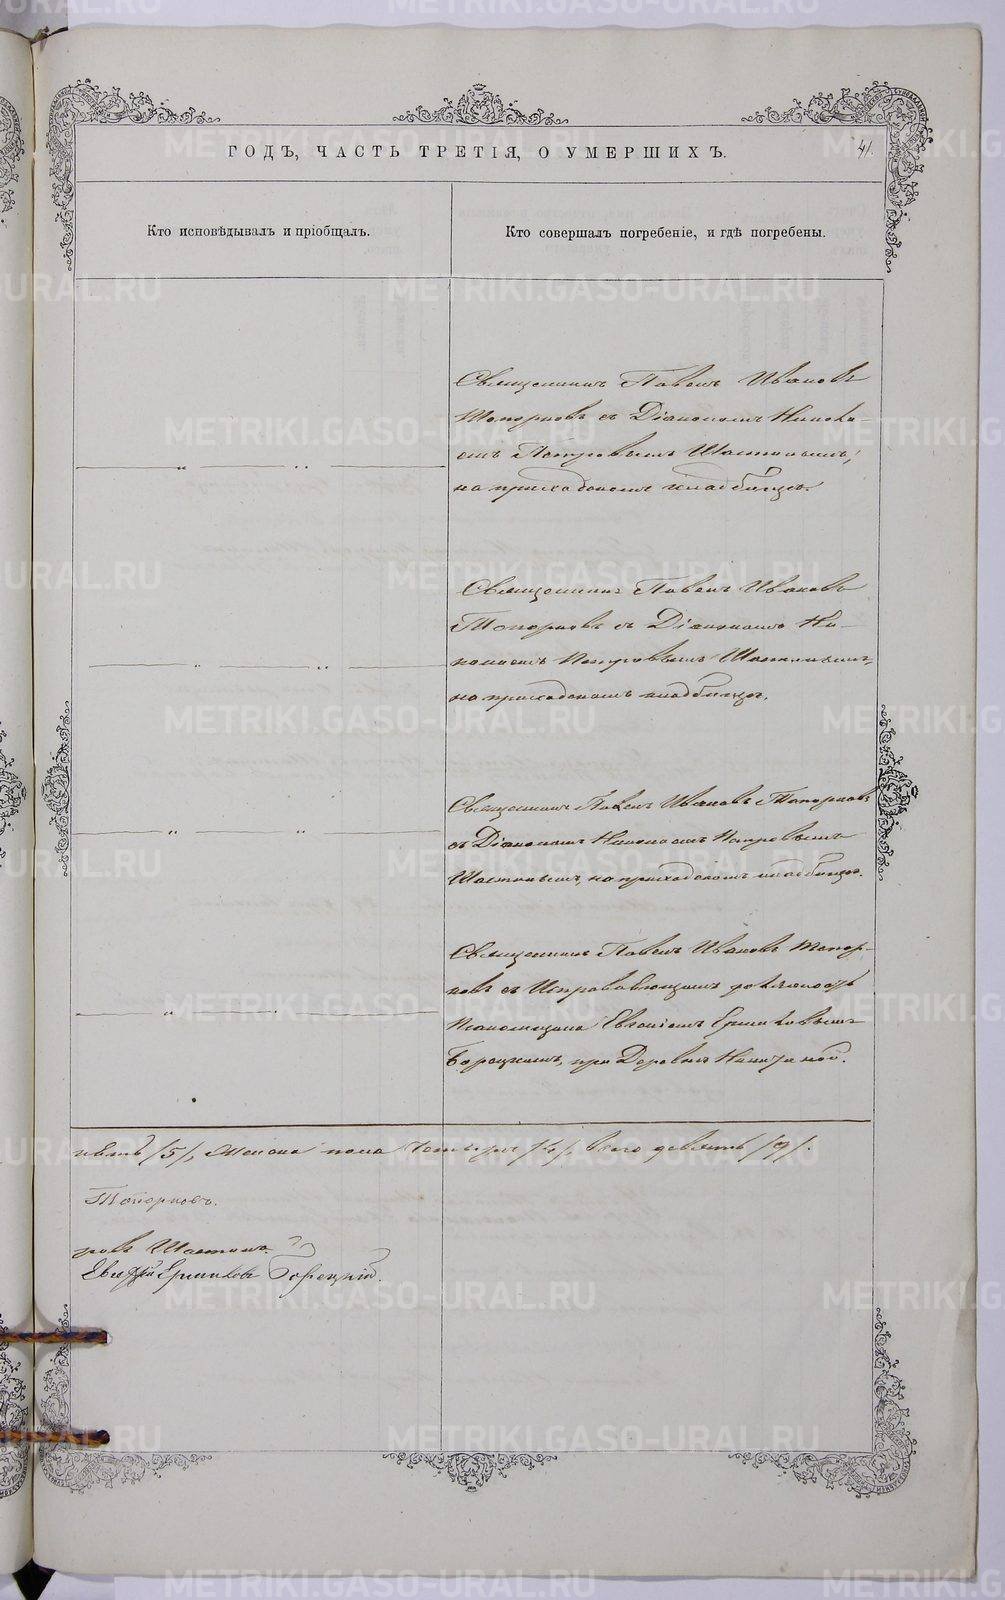 ГОДЪ, ЧАСТЬ ТРЕТІЯ, О УМЕРШИХЪ.
41.
Кто исповѣдывалъ и пріобщалъ.
Кто совершалъ погребеніе, и гдѣ погребены.
Священникъ Павелъ Ивановъ
Топорковъ съ Діакономъ Никола-
емъ Петровымъ
на приходскомъ кладбищѣ.
Священникъ Павелъ Ивановъ
Топорковъ съ Діакономъ Ни-
колаемъ Петровымъ
на приходскомъ кладбищѣ.
Священникъ Павелъ Ивановъ Топорковъ
съ Діакономъ Николаемъ Петровымъ
на приходскомъ кладбищѣ.
Священникъ Павелъ Ивановъ Топор-
ковъ съ Исправляющимъ должность
Псаломщика Ермиловымъ
Борецкимъ, при Деревнѣ
пять /5/, Женска пола Четыре /4/. Всего девять /9/.
Топорковъ.
ровъ
Ермиловъ Борецкій.
METRIKI.GASO-URAL.RU